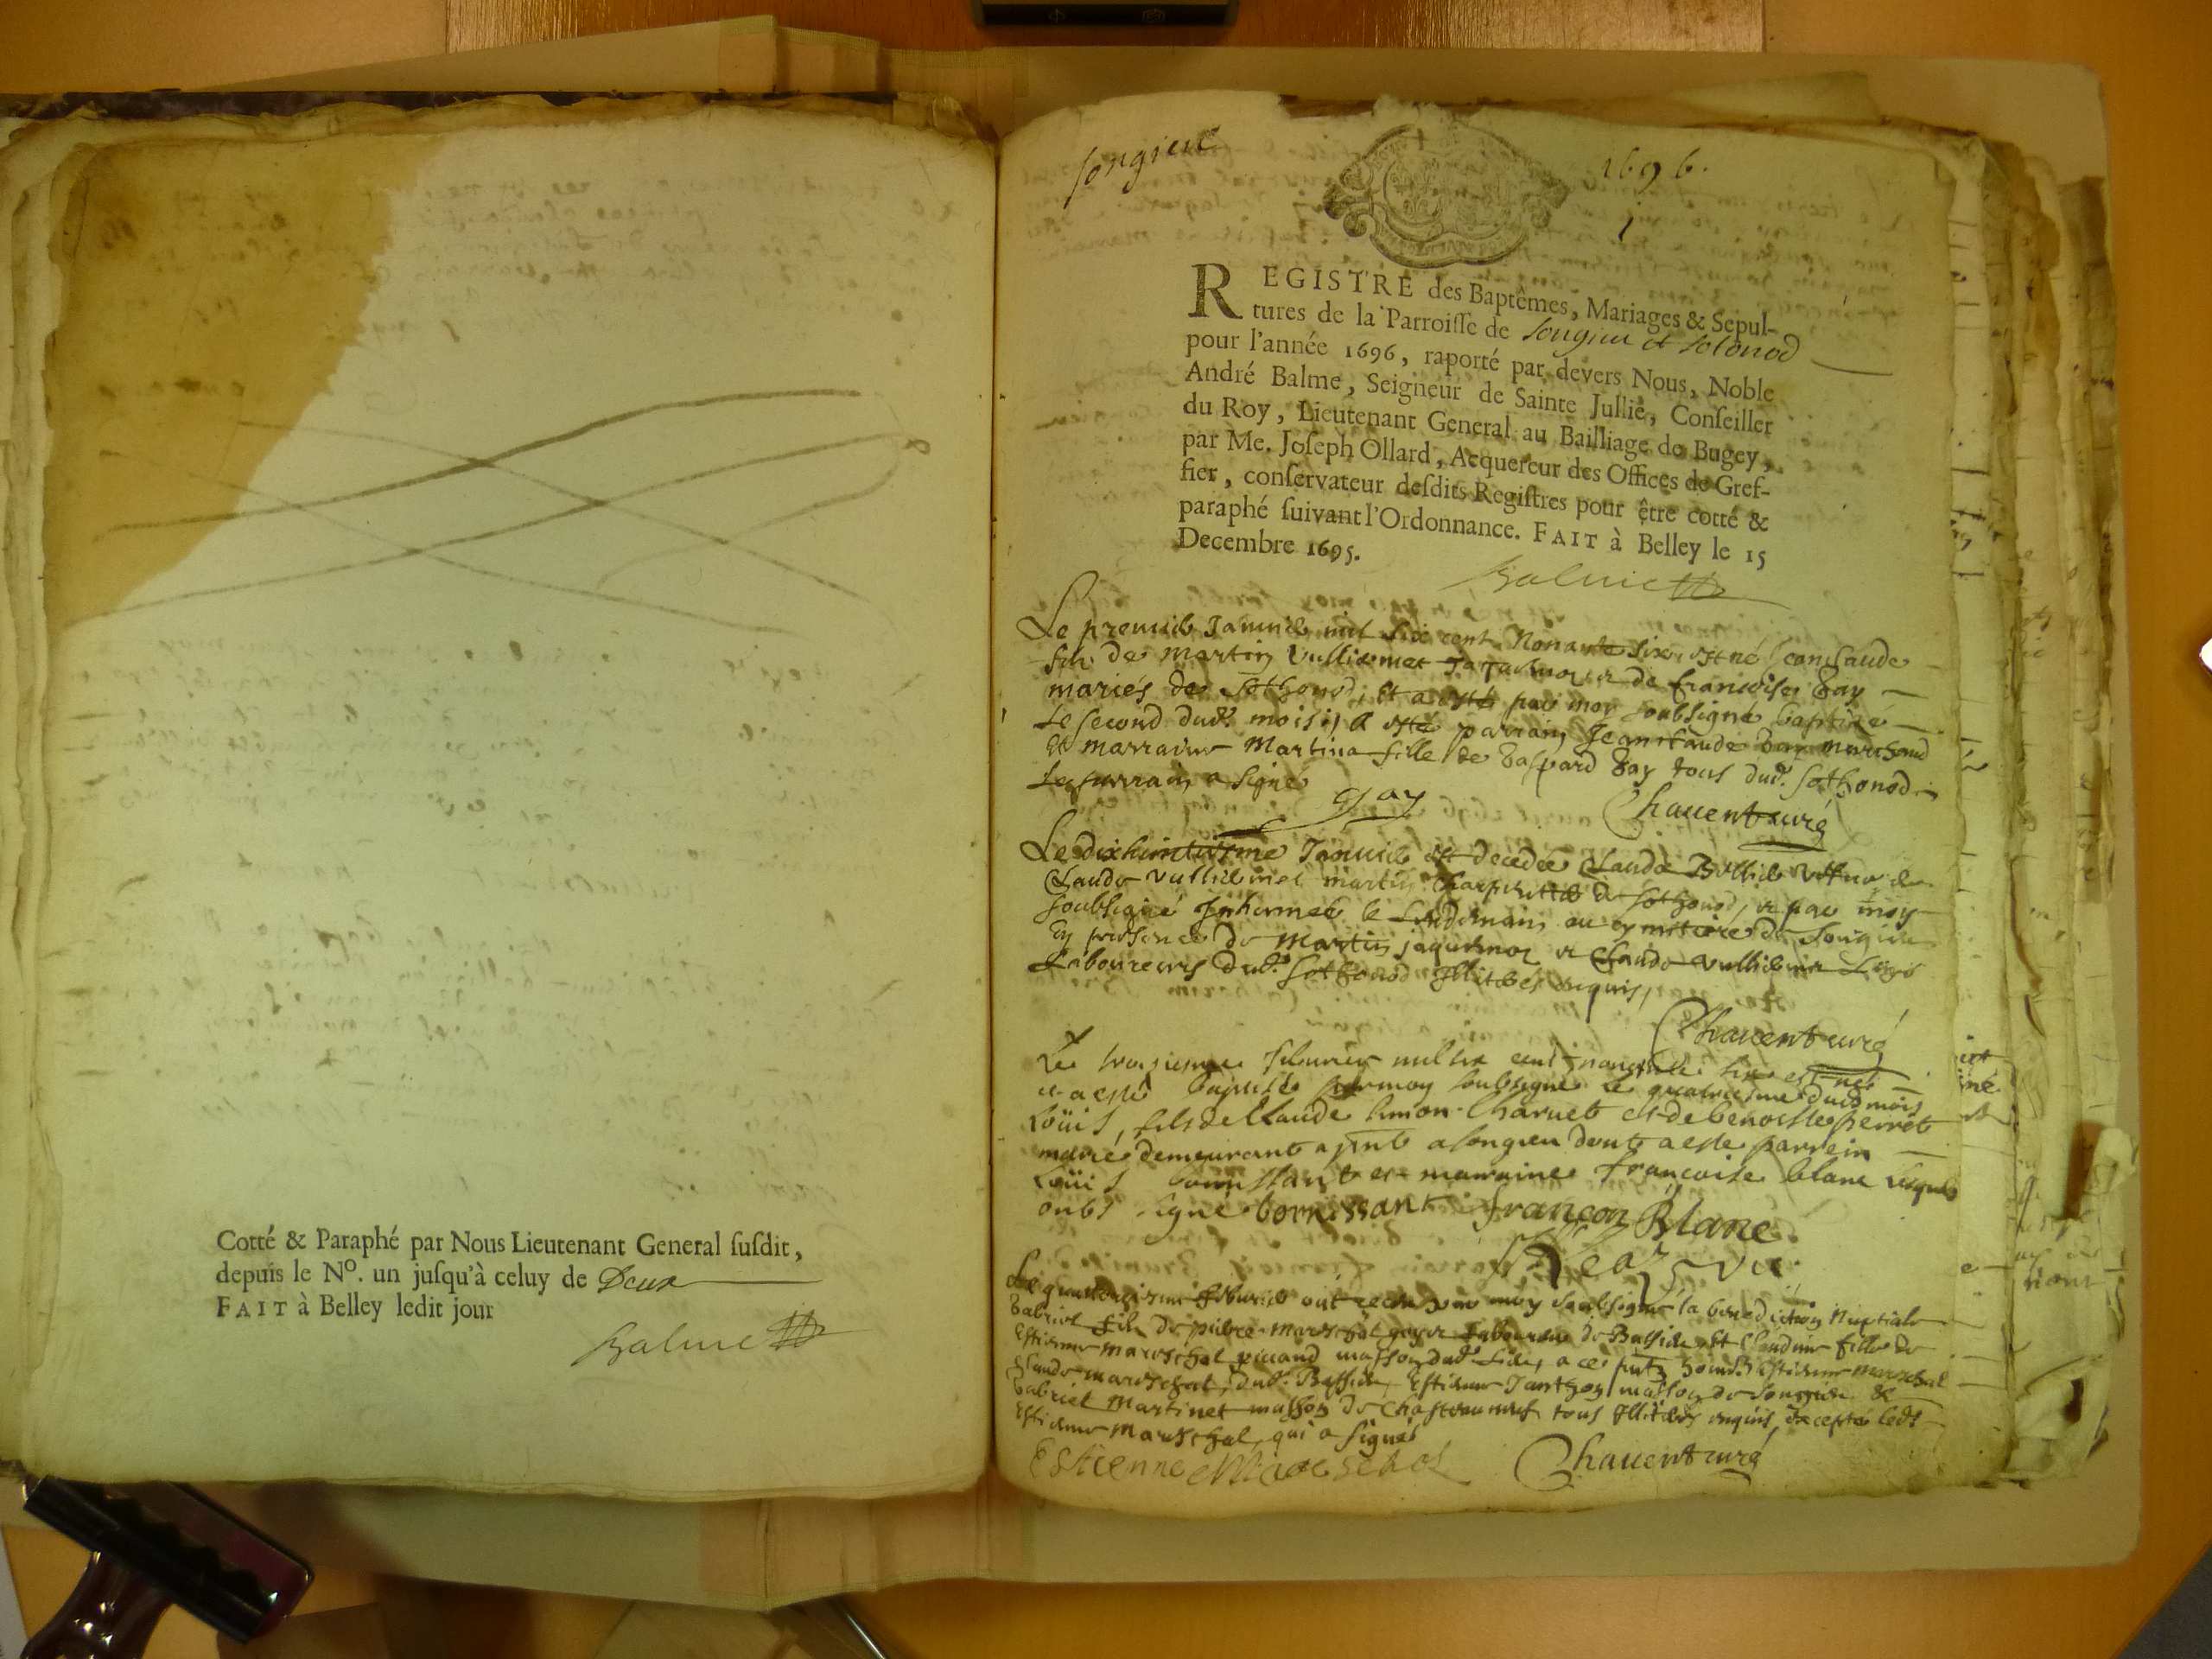 Cotté & Paraphé par Nous Lieutenant General susdit,
depuis le No. un jusqu'à celuy de Deux
FAIT à Belley ledit jour
Balme
Songieu
1696.
1
REGISTRE des Baptêmes, Mariages & Sepul-
tures de la Parroisse de Songieu et Sotonod
pour l'année 1696, raporté par devers Nous, Noble
André Balme, Seigneur de Sainte Jullie, Conseiller
du Roy, Lieutenant General au Bailliage de Bugey,
par Me. Joseph Ollard, Acquereur des Offices de Gref-
fier, conservateur desdits Registres pour être cotté &
paraphé suivant l'Ordonnance. FAIT à Belley le 15
Decembre 1695.
Balme
Le premier Januier mil six cent Nonante six, est né Jean Claude
fils de martin Vulliemet Jaquemoz et de françoise Gay
mariés de Sothonod, et a esté par moy soubsigné baptizé
Le second dud. mois, a esté parrain Jean Claude Gay marchand
Et marraine Martina fille de Gaspard Gay tous dud. Sothonod
Le parrain a signé
Gay
Chauent curé
Le dixhuitiesme Januier est decedée Clauda Bollie veffue de
Claude Vulliemet martin charpentier de Sothonod, et par moy
soubsigné Inhumée le Lendemain au cymitiere de Songieu
En presence de Martin jaquemoz et Claude Vulliemet
Laboureurs dud. Sothonod Illiterés enquis,
Chauent curé
Le troisieme feburier mil six cent nonante six est né
et a esté baptisé par moy soubsigné le quatriesme dud mois
Loüis, fils de Claude simon Charuet et de benoiste perret
mariés demeurant a songieu dont a este parrein
Loüis bonissant et marraine francoise blanc lesquels
onts signé bonissant françoy Blanc
Le quatorzieme feburier ont receu par moy soubsigné la benediction Nuptiale
Gabriel fils de pierre marschal Laboureur de Bassieu Et Claudine fille de
Estienne marschal piccand masson dud. Lieu, a ce pntz Estienne marschal
Claude marschal, dud. Bassieu, Estienne Janthon masson de Songieu &
Gabriel Martinet masson de Chasteauneuf tous Illiterés enquis, Excepté ledt
Estienne marschal, qui a signé
Estienne Marschal
Chauent curé